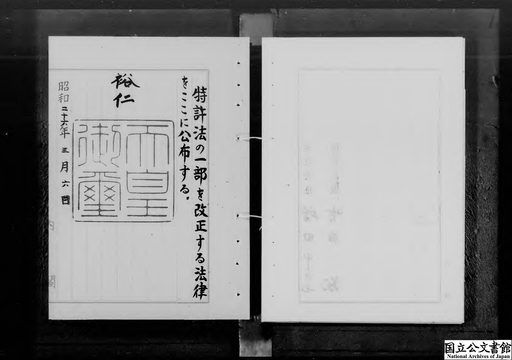 特許法の一部を改正する法律
をここに公布する。
裕仁
天皇
御璽
昭和二十六年三月六日
内閣
国立公文書館
National Archives of Japan